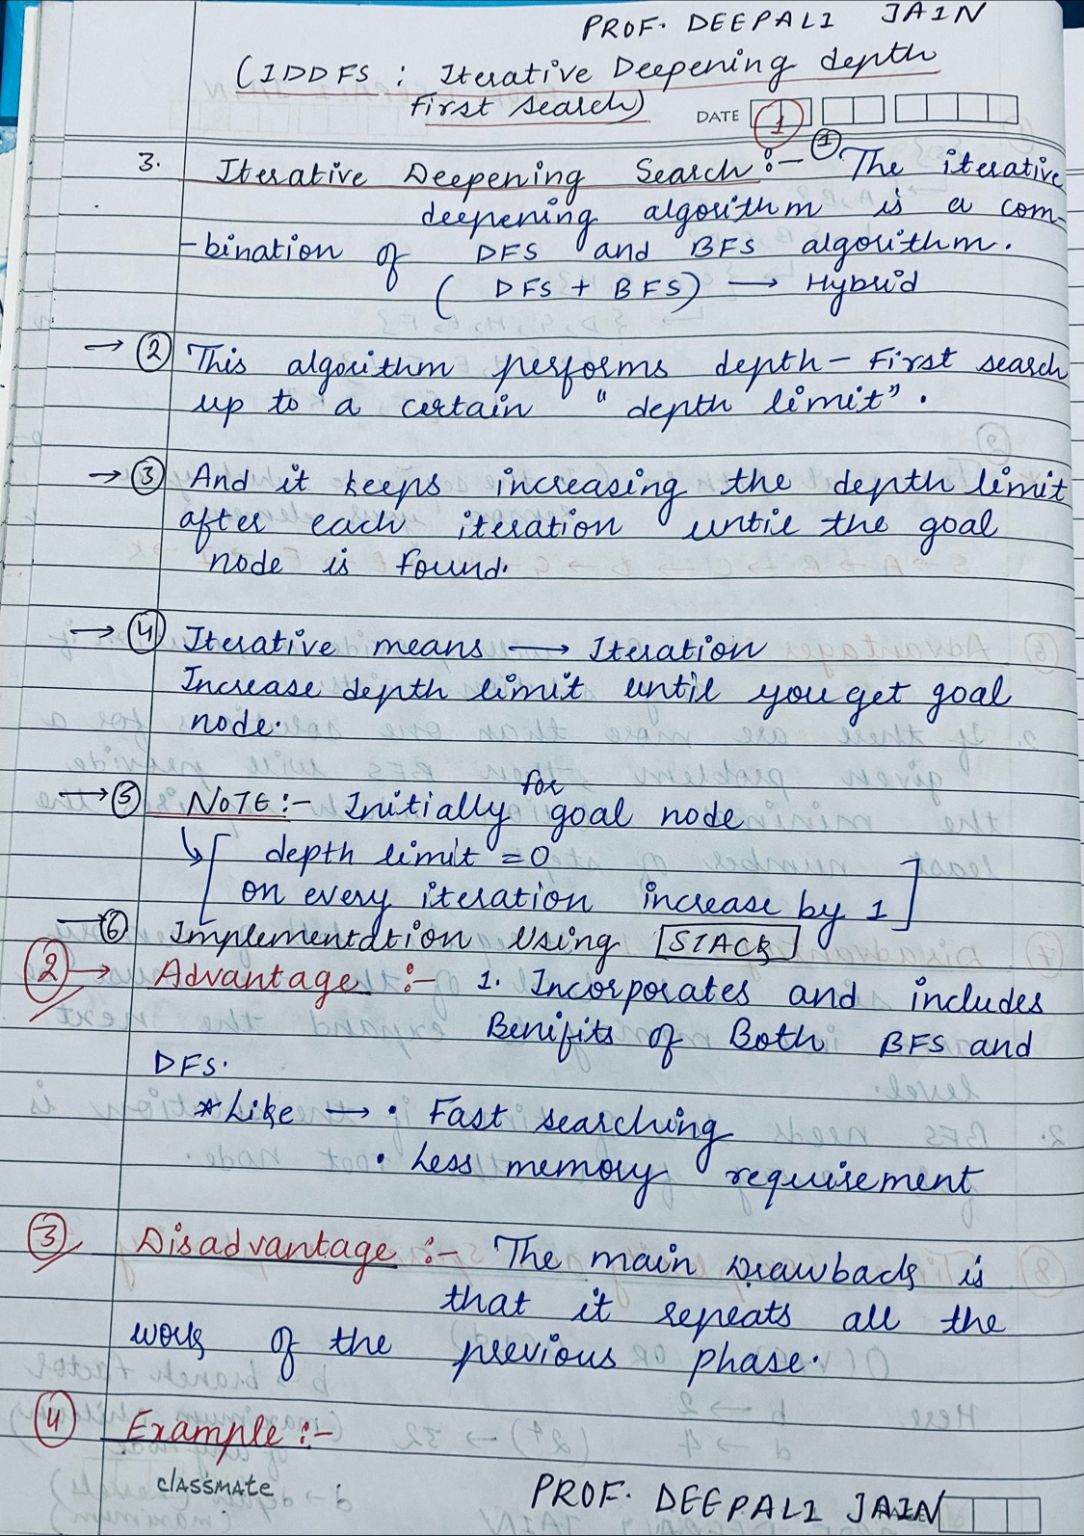 PROF. DEEPALI JAIN
(IDDFS : Iterative Deepening depth
First search)
DATE 1
3. Iterative Deepening Search :- ① The iterative
deepening algorithm is a com-
-bination of DFS and BFS algorithm.
( DFS + BFS) → Hybrid
→ ② This algorithm performs depth - First search
up to a certain "depth limit".
→ ③ And it keeps increasing the depth limit
after each iteration until the goal
node is found.
→ ④ Iterative means → Iteration
Increase depth limit until you get goal
node.
→ ⑤ NOTE :- Initially for goal node
↳ [ depth limit = 0
on every iteration increase by 1 ]
→ ⑥ Implementation Using [STACK]
② → Advantage :- 1. Incorporates and includes
Benifits of Both BFS and
DFS.
* Like → • Fast searching
• Less memory requirement
③ Disadvantage :- The main Drawback is
that it repeats all the
work of the previous phase.
④ Example :-
classmate
PROF. DEEPALI JAIN